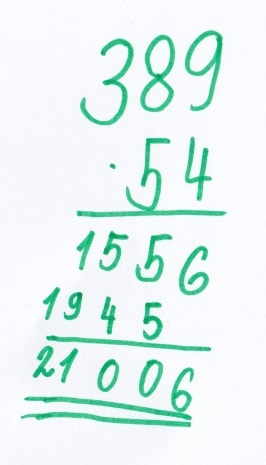 389
· 54
1556
1945
21006